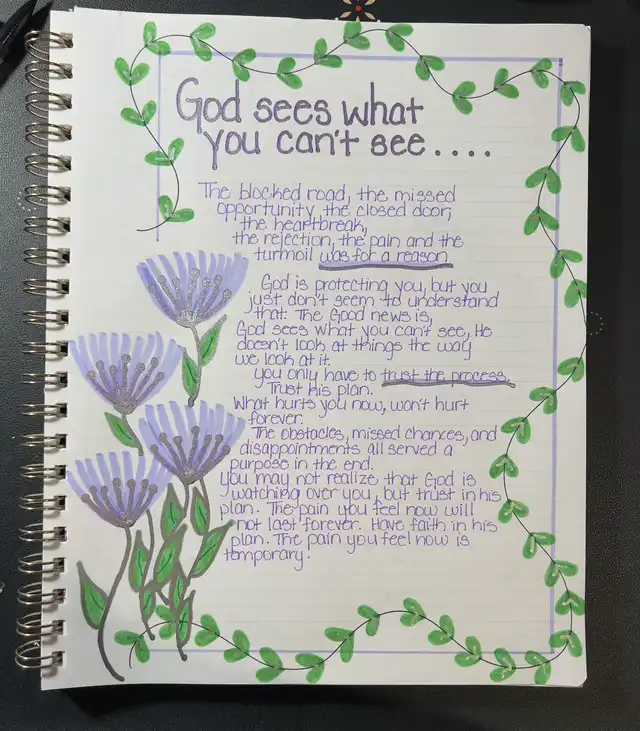 God sees what
you can't see....
The blocked road, the missed
opportunity, the closed door,
the heartbreak,
the rejection, the pain and the
turmoil was for a reason
God is protecting you, but you
just don't seem to understand
that. The Good news is,
God sees what you can't see, He
doesn't look at things the way
we look at it.
you only have to trust the process.
Trust his plan.
What hurts you now, won't hurt
forever.
The obstacles, missed chances, and
disappointments all served a
purpose in the end.
you may not realize that God is
watching over you, but trust in his
plan. The pain you feel now will
not last forever. Have faith in his
plan. The pain you feel now is
temporary!